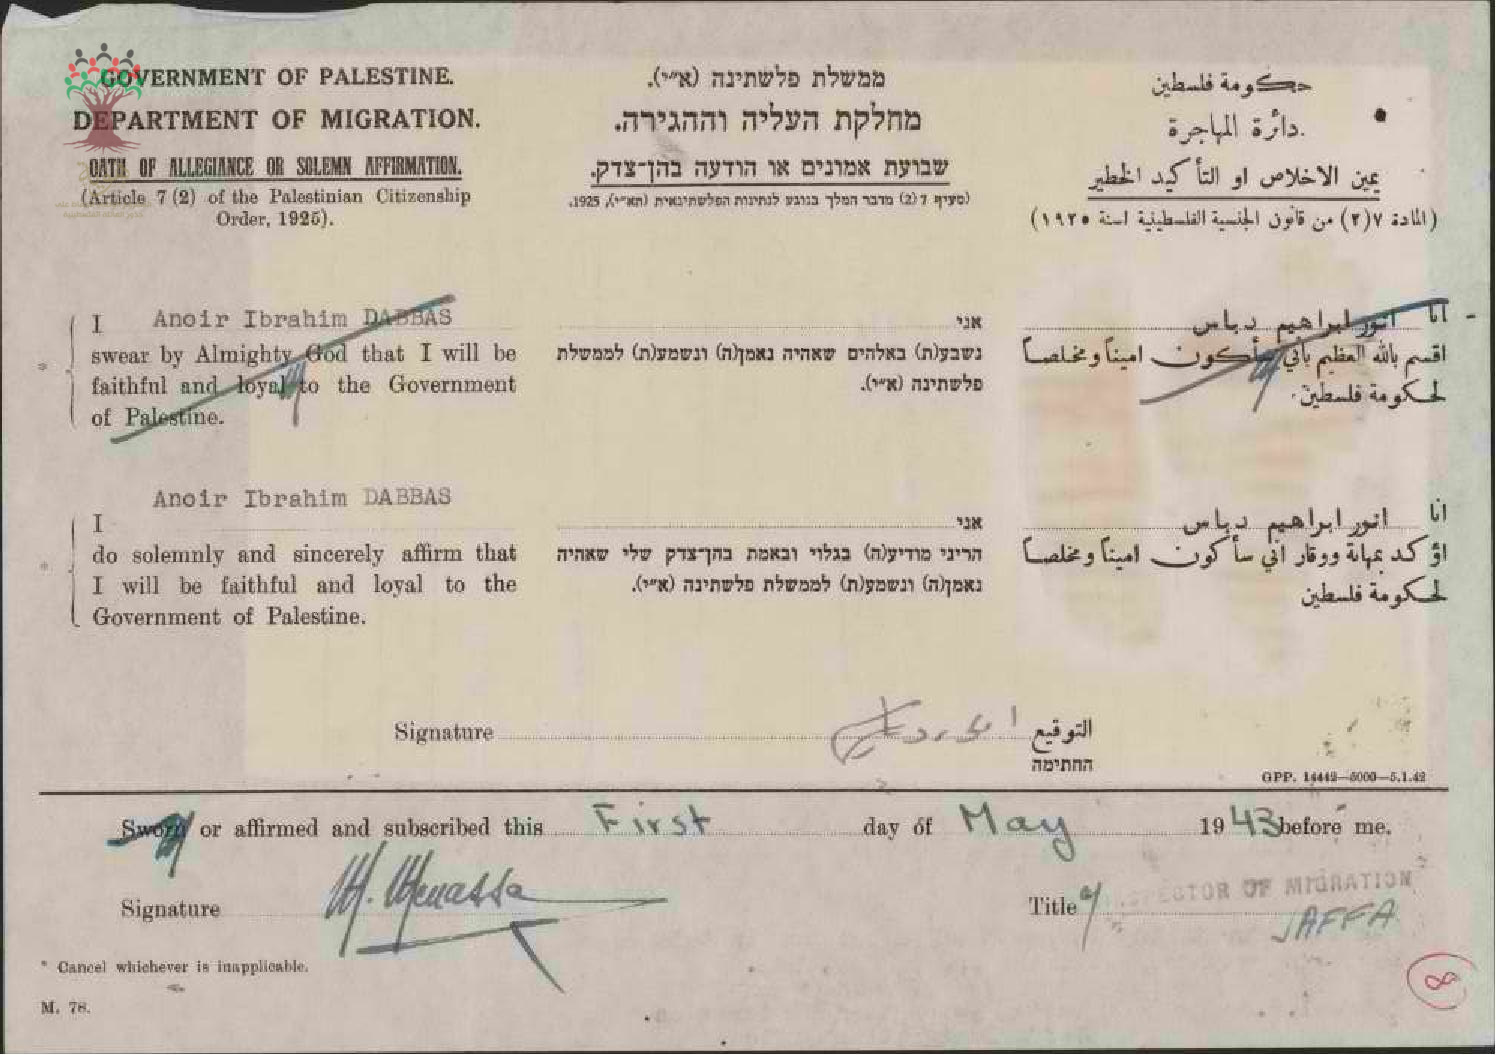 GOVERNMENT OF PALESTINE.
DEPARTMENT OF MIGRATION.
OATH OF ALLEGIANCE OR SOLEMN AFFIRMATION.
(Article 7 (2) of the Palestinian Citizenship
Order, 1925).
ממשלת פלשתינה (א״י).
מחלקת העליה וההגירה.
שבועת אמונים או הודעה בהן־צדק.
(סעיף 7 (2) מדבר המלך בנוגע לנתינות הפלשתינאית (תא״י), 1925.
حكومة فلسطين
دائرة المهاجرة.
يمين الاخلاص او التأكيد الخطير
(المادة ٧(٢) من قانون الجنسية الفلسطينية لسنة ١٩٢٥)
I Anoir Ibrahim DABBAS
swear by Almighty God that I will be
faithful and loyal to the Government
of Palestine.
אני
נשבע(ת) באלהים שאהיה נאמן(ה) ונשמע(ת) לממשלת
פלשתינה (א״י).
انا انور ابراهيم دباس
اقسم بالله العظيم بأني سأكون اميناً ومخلصاً
لحكومة فلسطين.
Anoir Ibrahim DABBAS
I
do solemnly and sincerely affirm that
I will be faithful and loyal to the
Government of Palestine.
אני
הריני מודיע(ה) בגלוי ובאמת בהן־צדק שלי שאהיה
נאמן(ה) ונשמע(ת) לממשלת פלשתינה (א״י).
انا انور ابراهيم دباس
اؤكد بمهانة ووقار اني سأكون اميناً ومخلصاً
لحكومة فلسطين
Signature التوقيع
החתימה
GPP. 14442—5000—5.1.42
Sworn or affirmed and subscribed this First day of May 1943 before me.
Signature M. Menassa
Title INSPECTOR OF MIGRATION
JAFFA
* Cancel whichever is inapplicable.
M. 78.
8